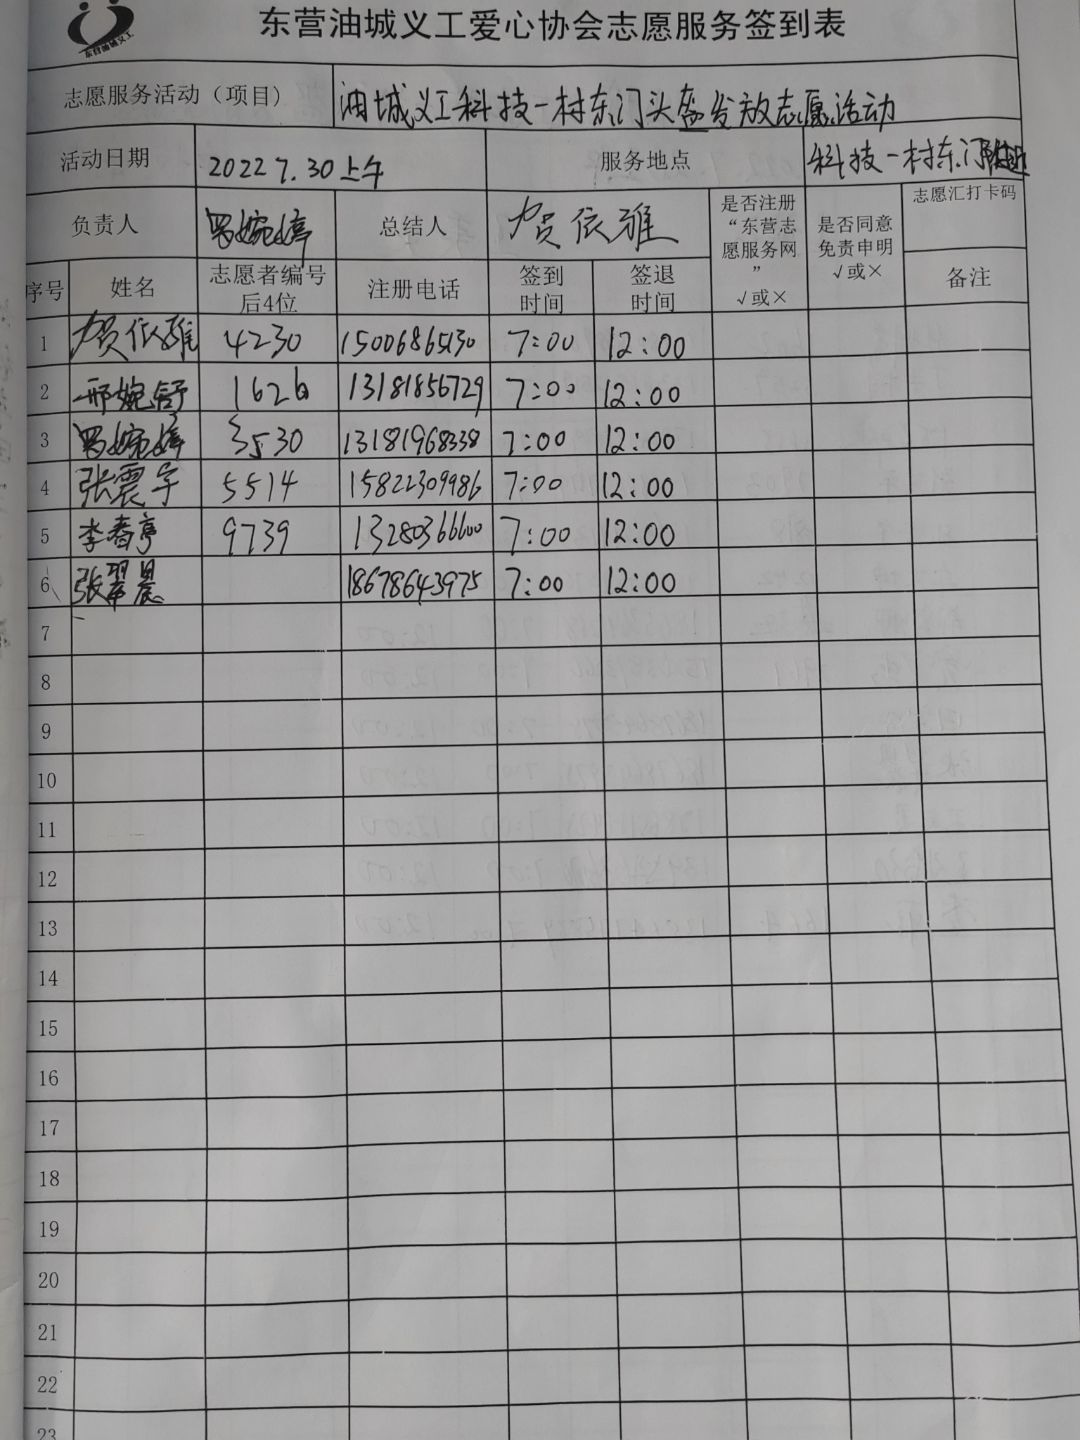 东营油城义工
东营油城义工爱心协会志愿服务签到表
志愿服务活动（项目） 油城义工科技一村东门头盔发放志愿活动
活动日期 2022 7.30上午 服务地点 科技一村东门附近
负责人 罗婉婷 总结人 贺依雅 是否注册“东营志愿服务网” √或× 是否同意免责申明 √或× 志愿汇打卡码
序号 姓名 志愿者编号后4位 注册电话 签到时间 签退时间 备注
1 贺依雅 4230 15006865130 7:00 12:00
2 邢婉舒 1626 13181856729 7:00 12:00
3 罗婉婷 3530 13181968338 7:00 12:00
4 张震宇 5514 15822309986 7:00 12:00
5 李春亭 9739 13280366600 7:00 12:00
6 张翠晨 18678643975 7:00 12:00
7
8
9
10
11
12
13
14
15
16
17
18
19
20
21
22
23